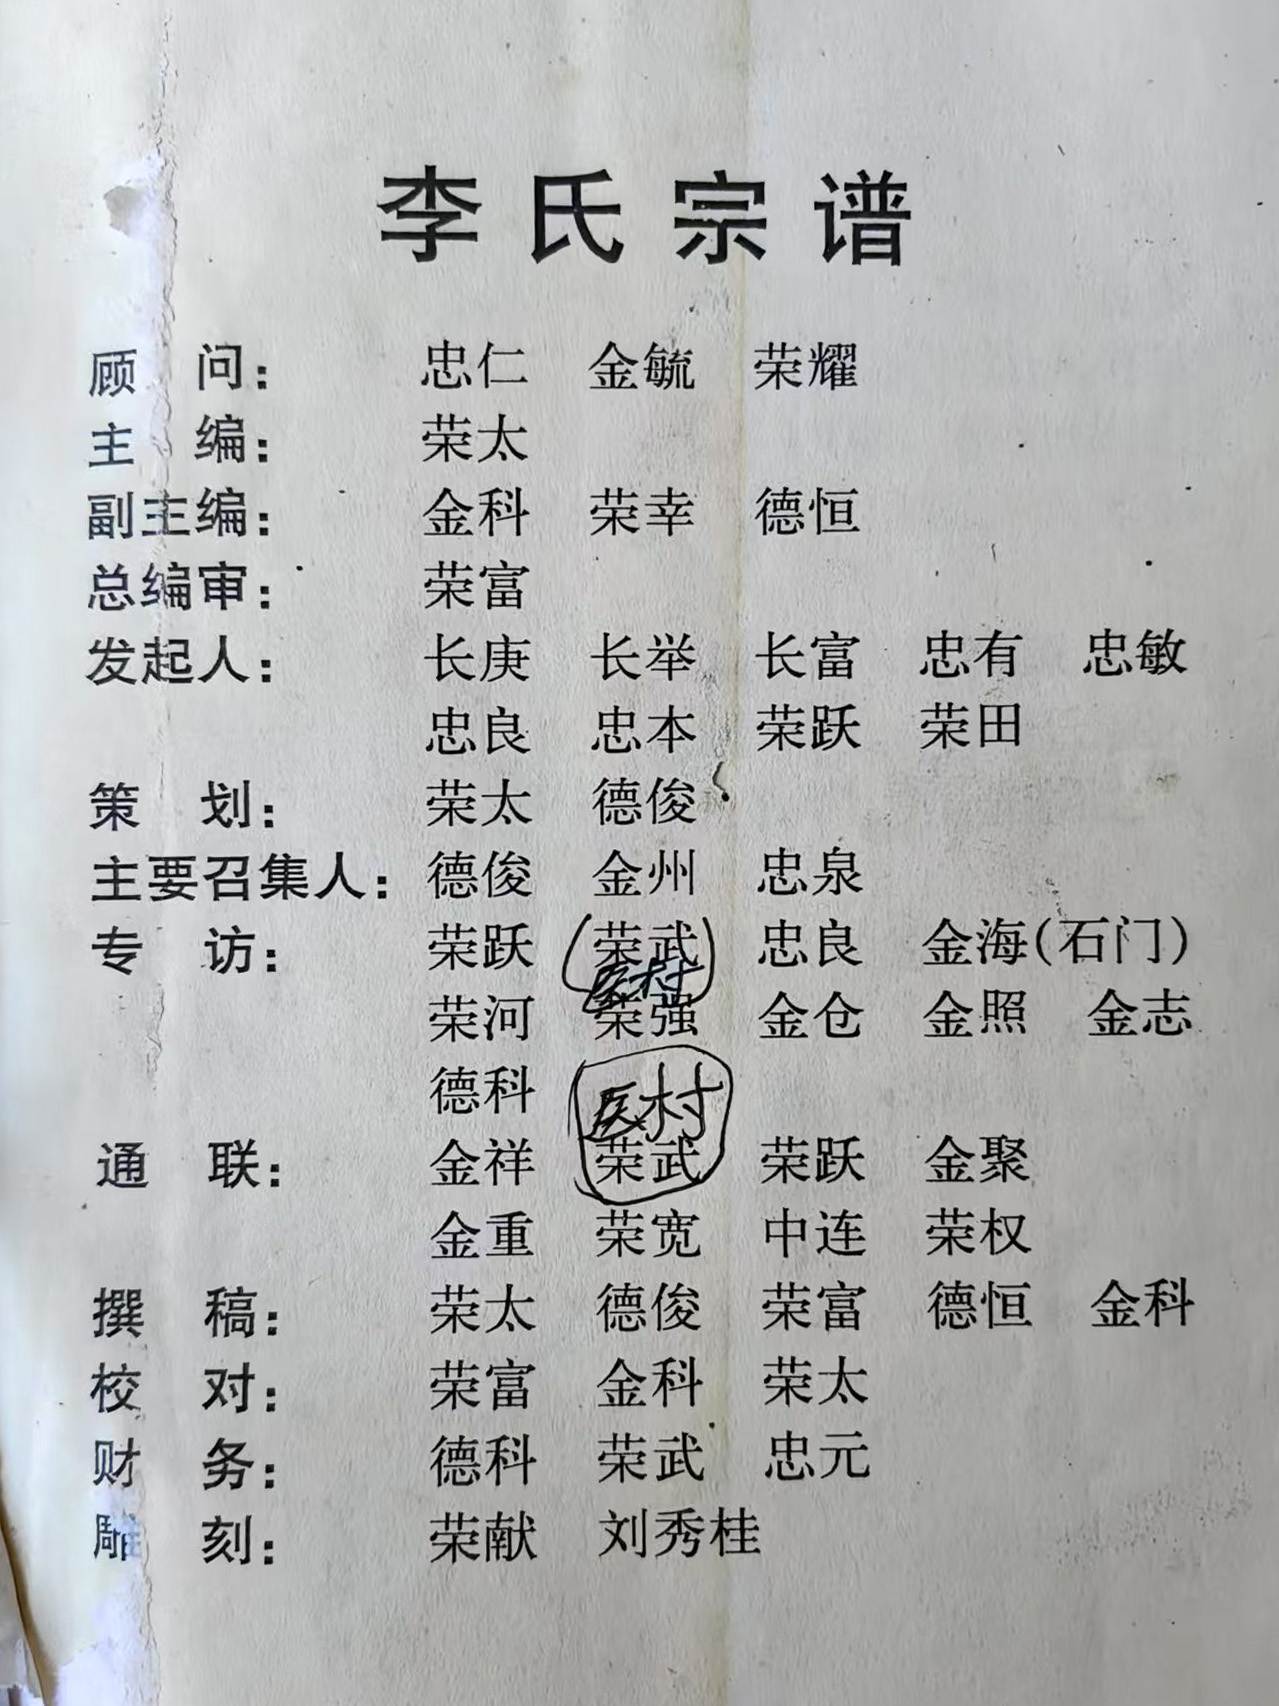 李氏宗谱
顾 问： 忠仁 金毓 荣耀
主 编： 荣太
副主编： 金科 荣幸 德恒
总编审： 荣富
发起人： 长庚 长举 长富 忠有 忠敏
忠良 忠本 荣跃 荣田
策 划： 荣太 德俊
主要召集人： 德俊 金州 忠泉
专 访： 荣跃 (荣武) 忠良 金海(石门)
村
荣河 荣强 金仓 金照 金志
德科 村
通 联： 金祥 荣武 荣跃 金聚
金重 荣宽 中连 荣权
撰 稿： 荣太 德俊 荣富 德恒 金科
校 对： 荣富 金科 荣太
财 务： 德科 荣武 忠元
雕 刻： 荣献 刘秀桂